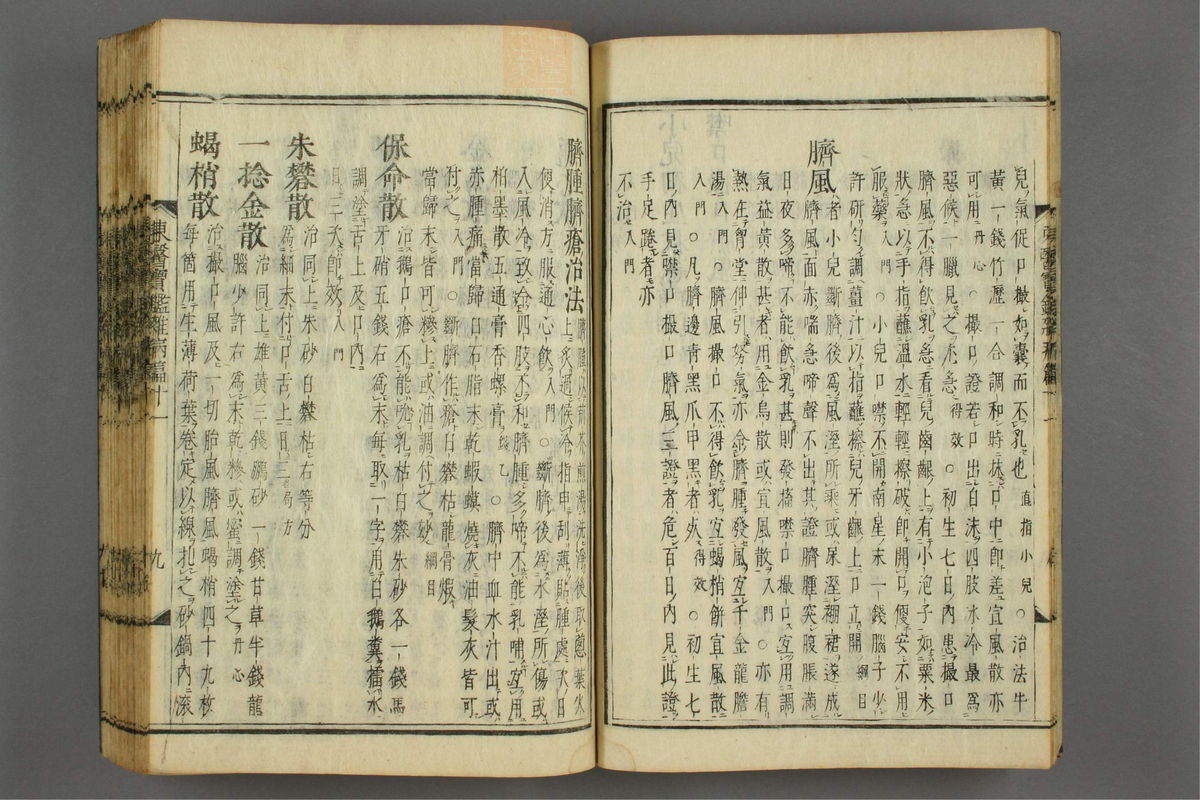 兒氣促口撮如囊而不乳也直指小兒○治法牛
黃一錢竹瀝一合調和時抹口中卽差宜風散亦
可用丹心○撮口證若口出白沫四肢氷冷最爲
惡候一臘見之尤急得效○初生七日內患撮口
臍風不得飮乳急看兒齒齦上有小泡子如粟米
狀急以手指蘸溫水輕輕擦破卽開口便安不用
服藥入門○小兒口噤不開南星末一錢腦子少
許硏勻調薑汁以指蘸擦兒牙齦上口立開綱目
臍風者小兒斷臍後爲風溼所乘或尿溼褟裙遂成
臍風面赤喘急啼聲不出其證臍腫突腹脹滿
日夜多啼不能飮乳甚則發搐噤口撮口宜用調
氣益黃散甚者用金烏散或宜風散入門○亦有
熱在胷堂伸引努氣亦令臍腫發風宜千金龍膽
湯入門○臍風撮口不得飮乳宜蝎梢餠宜風散
入門○凡臍邊靑黑爪甲黑者死得效○初生七
日內見噤口撮口臍風三證者危百日內見此證
手足踡者亦
不治入門
臍腫臍瘡治法臍腫以荊芥煎湯洗淨後取葱葉火
上炙過候冷指甲刮薄貼腫處次日
便消方服通心飮入門○斷臍後爲水溼所傷或
入風冷致令四肢不和臍腫多啼不能乳哺宜用
栢墨散五通膏香螺膏錢乙○臍中血水汁出或
赤腫痛當歸白石脂末乾蝦蟆燒灰油髮灰皆可
付之入門○斷臍作瘡白礬枯龍骨煆
當歸末皆可糝上或油調付之妙綱目
保命散治鵝口瘡不能吮乳枯白礬朱砂各一錢馬
牙硝五錢右爲末每取一字用白鵝糞擂水
調塗舌上及口內
日三次卽效入門
朱礬散治同上朱砂白礬枯右等分
爲細末付口舌上日三局方
一捻金散治同上雄黃三錢鵬砂一錢甘草半錢龍
腦少許右爲末乾糝或蜜調塗之丹心
蝎梢散治撮口風及一切胎風臍風蝎梢四十九枚
每箇用生薄荷葉卷定以線扎之砂鍋內滾
東醫寶鑑雜病篇十一
九